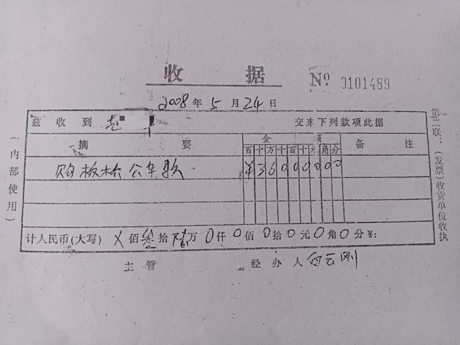 收 据 Nº 0101489
2008 年 5 月 24 日
兹 收 到 交来下列款项此据
摘 要 金 额 备 注
百 十 万 千 百 十 元 角 分
购 公车款 ¥ 3 6 0 0 0 0 0 0
计人民币(大写) X 佰 叁 拾 陆 万 0 仟 0 佰 0 拾 0 元 0 角 0 分 ¥:
主 管 经 办 人
(内部使用)
第二联:(发票)收货单位收执